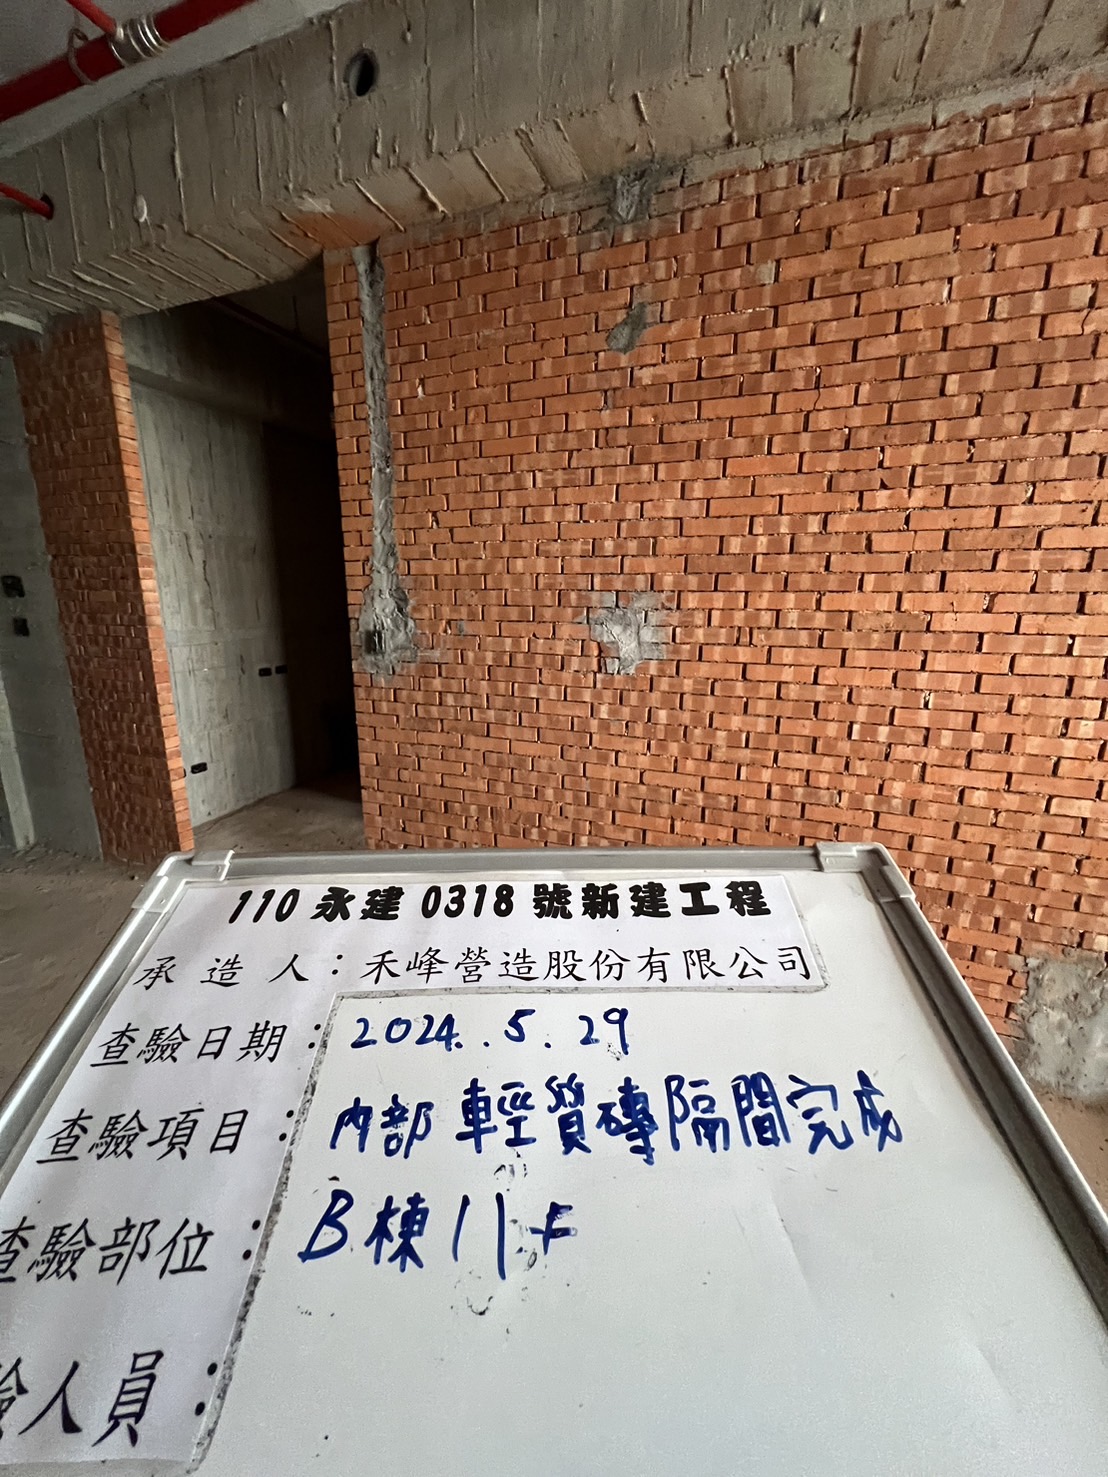 110 永建 0318 號新建工程
承造人：禾峰營造股份有限公司
查驗日期：2024..5.29
查驗項目：內部輕質磚隔間完成
查驗部位：B棟11F
驗人員：